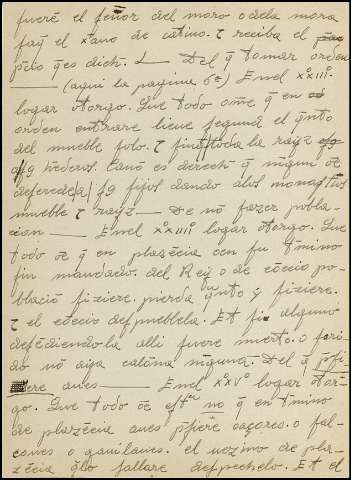 fueré el señor del moro o dela mora
fag el xᵒano de catino. τ reciba el
pcio q̃es dich. — Del q̃ tomar orden
— (aqui la pagina 6ª) Enel xxᵒiiiᵒ.
logar otorgo. Que todo om̃e q̃ en
orden entrare lieue segund el q̃nto
del mueble solo. τ finq̃ toda la rayz
a sˢ h̃ederos. Canõ es derecho q̃ ninguno õe
deserede a sˢ fijos dando alos monast̃ios
mueble τ rayz — De nõ fazer pobla-
cion — Enel xxiiiiᵒ logar otorgo. Que
todo õe q̃ en plazẽcia o en su t̃mino
sin mandado del Rey o de cõceio po-
blació fiziere. pierda quãnto y fiziere.
τ el cõceio despueblela. Et si alguno
defẽdiendo la alli fuere muerto. o feri-
do nõ aya calõna nĩguna. Del q̃ p̃si-
ere aues — Enel xxᵒvᵒ logar otor-
go. Que todo õe est̃no q̃ en t̃mino
de plazẽcia aues p̃siere açores. o fal-
cones o gauilanes. el uezino de pla-
zẽcia q̃lo fallare despechelo. Et el